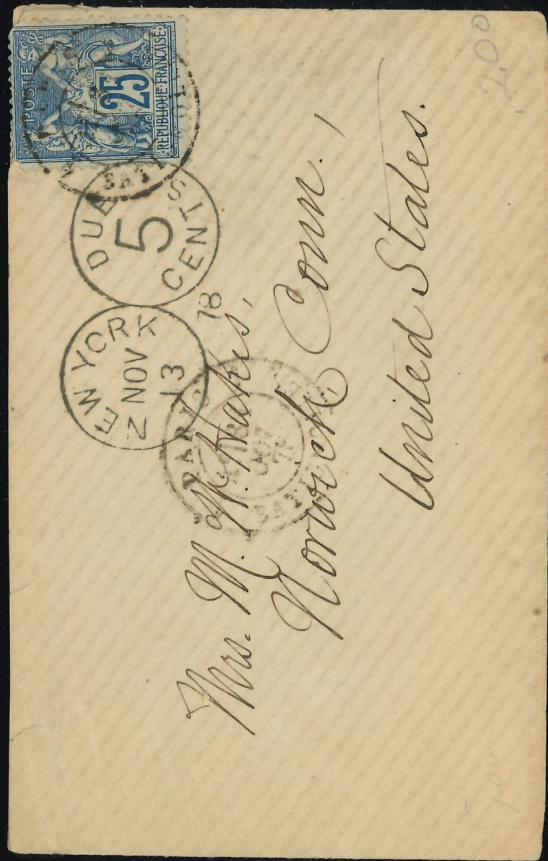 POSTES
25
REPUBLIQUE FRANCAISE
DUE 5 CENTS
NEW YORK
NOV
13
78
PARIS
Mrs. M. W. Hakes,
Norwich Conn.,
United States.
2.00